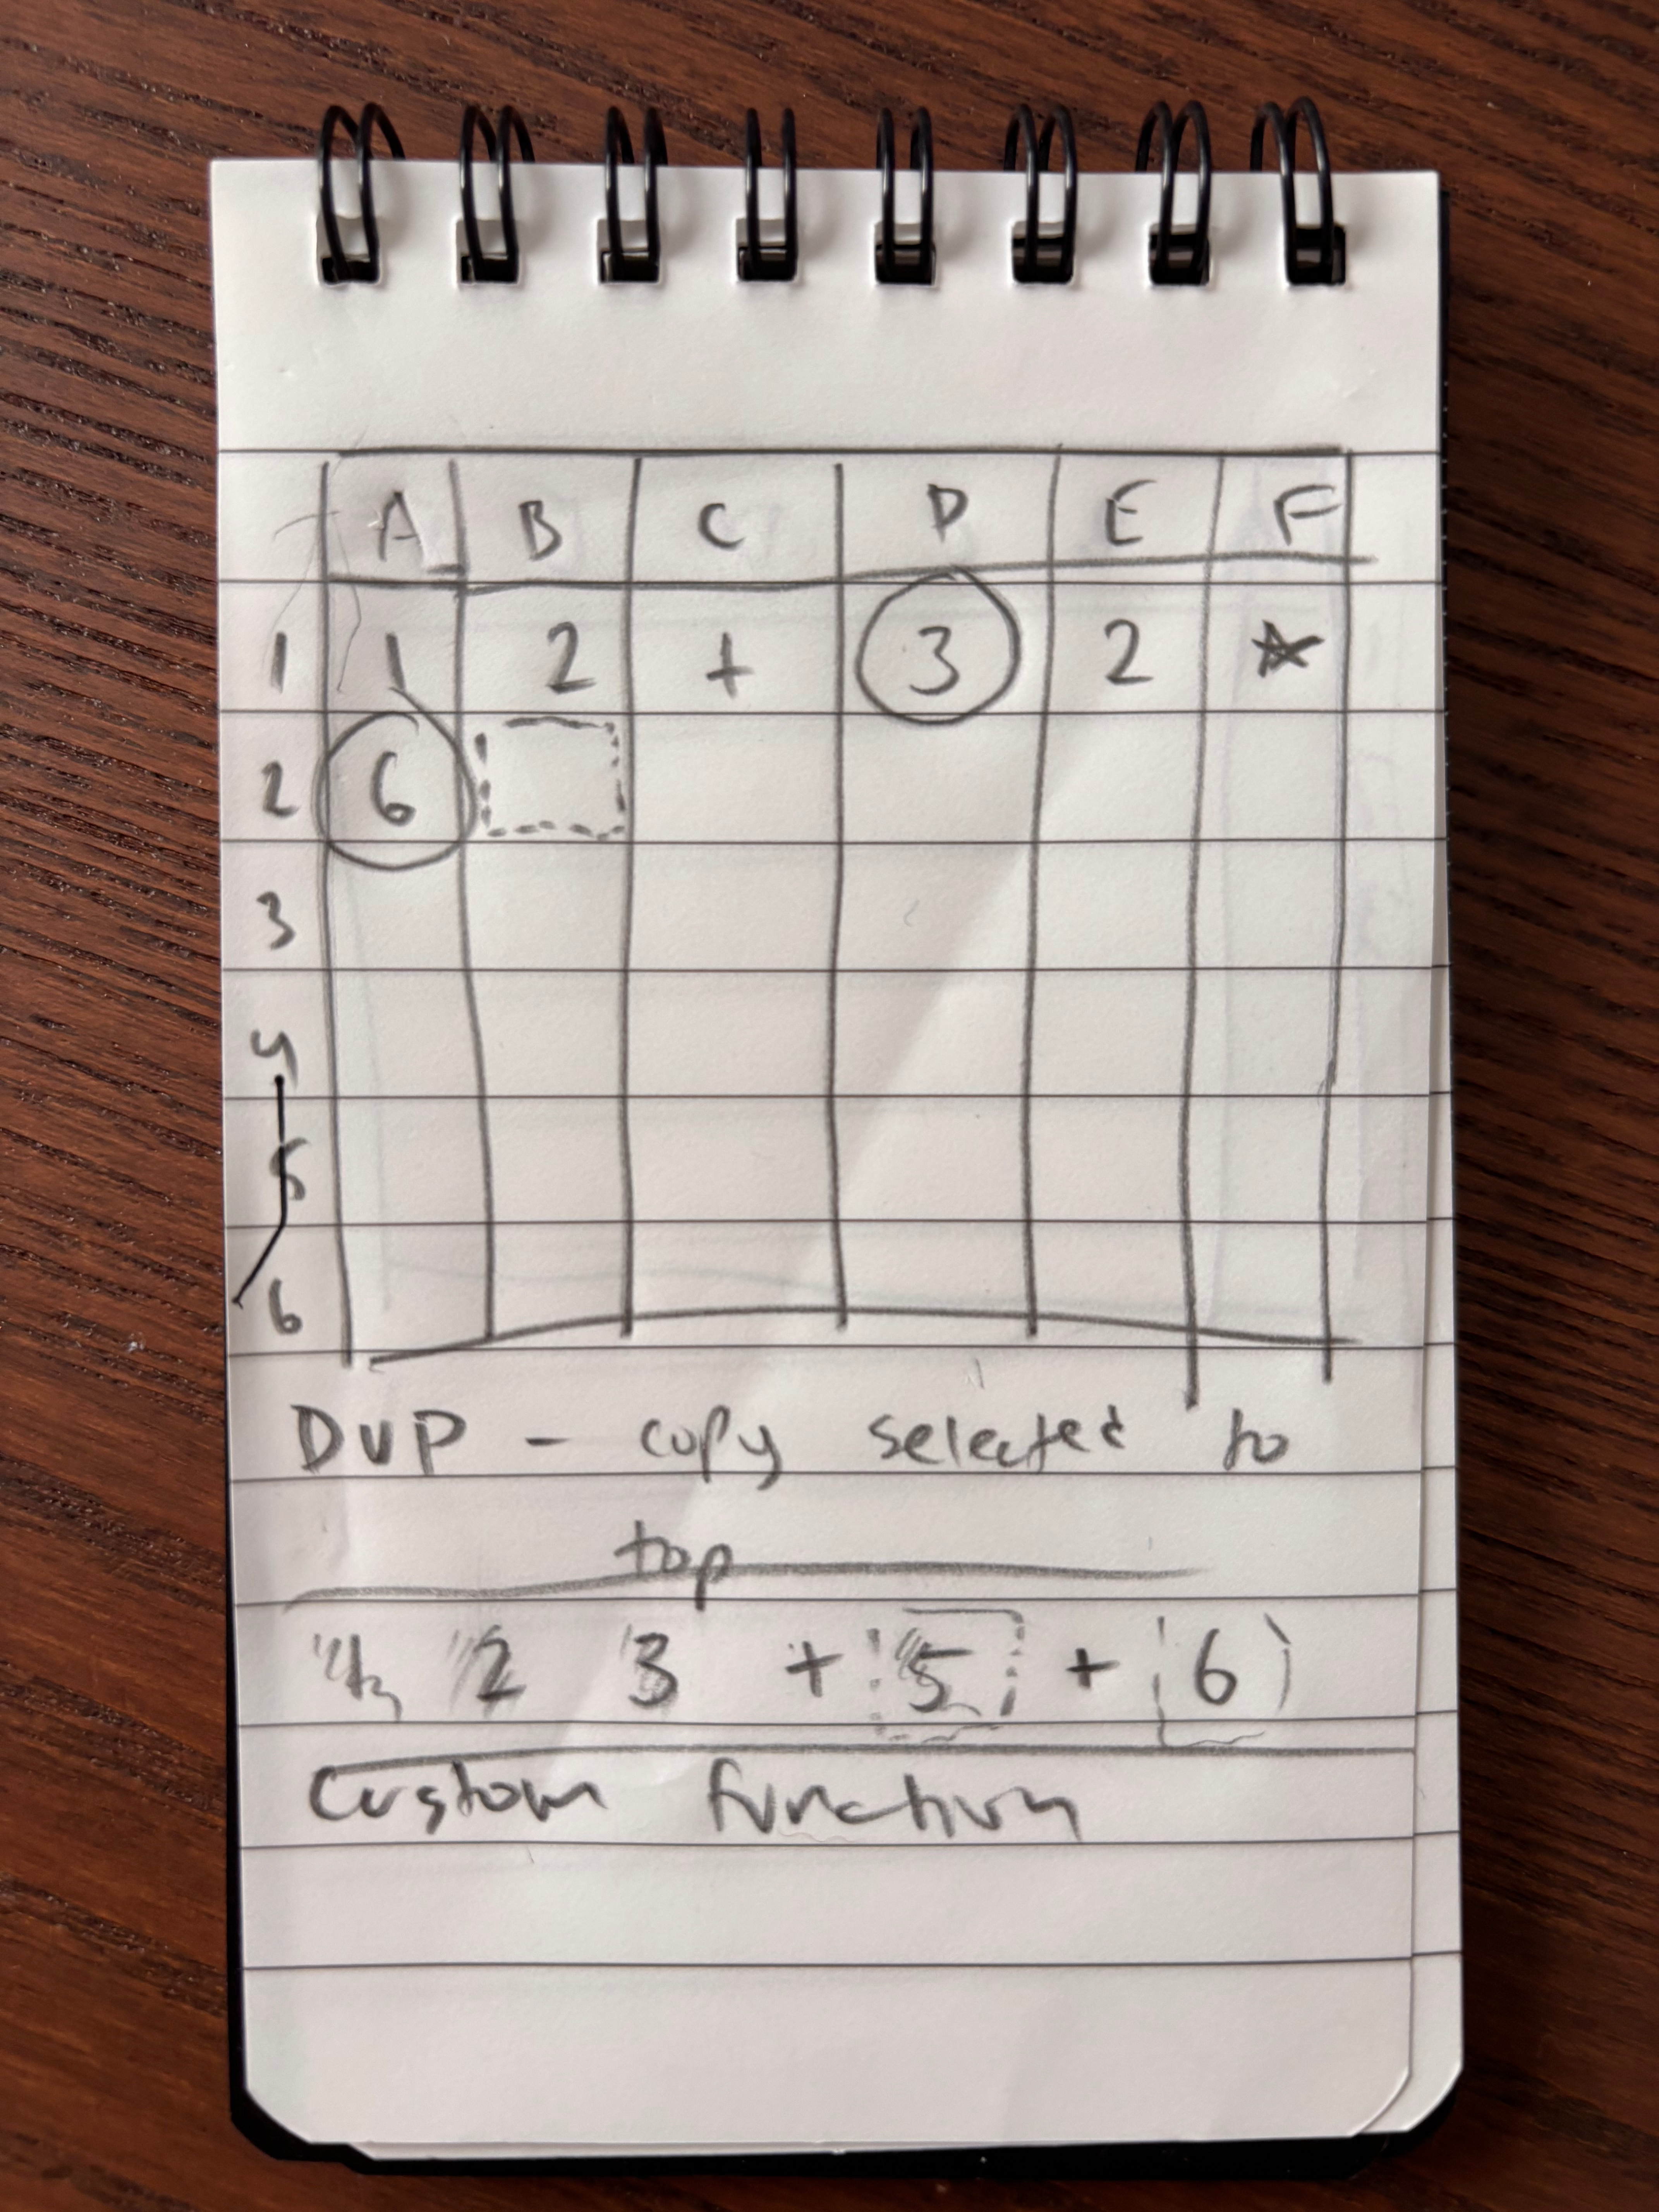 A B C D E F
1 1 2 + 3 2 *
2 6
3
4
5
6
DUP - copy selected to
top
2 3 + 5 + 6
Custom function